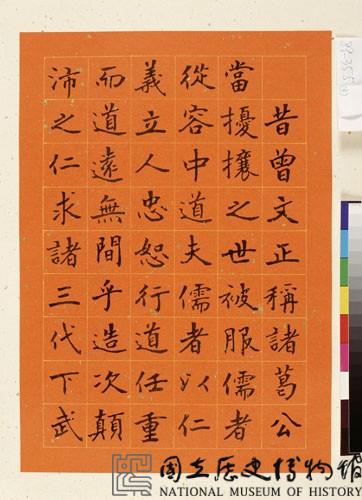 昔曾文正稱諸葛公
當擾攘之世被服儒者
從容中道夫儒者以仁
義立人忠恕行道任重
而道遠無間乎造次顛
沛之仁求諸三代下武
國立歷史博物館
NATIONAL MUSEUM OF HISTORY